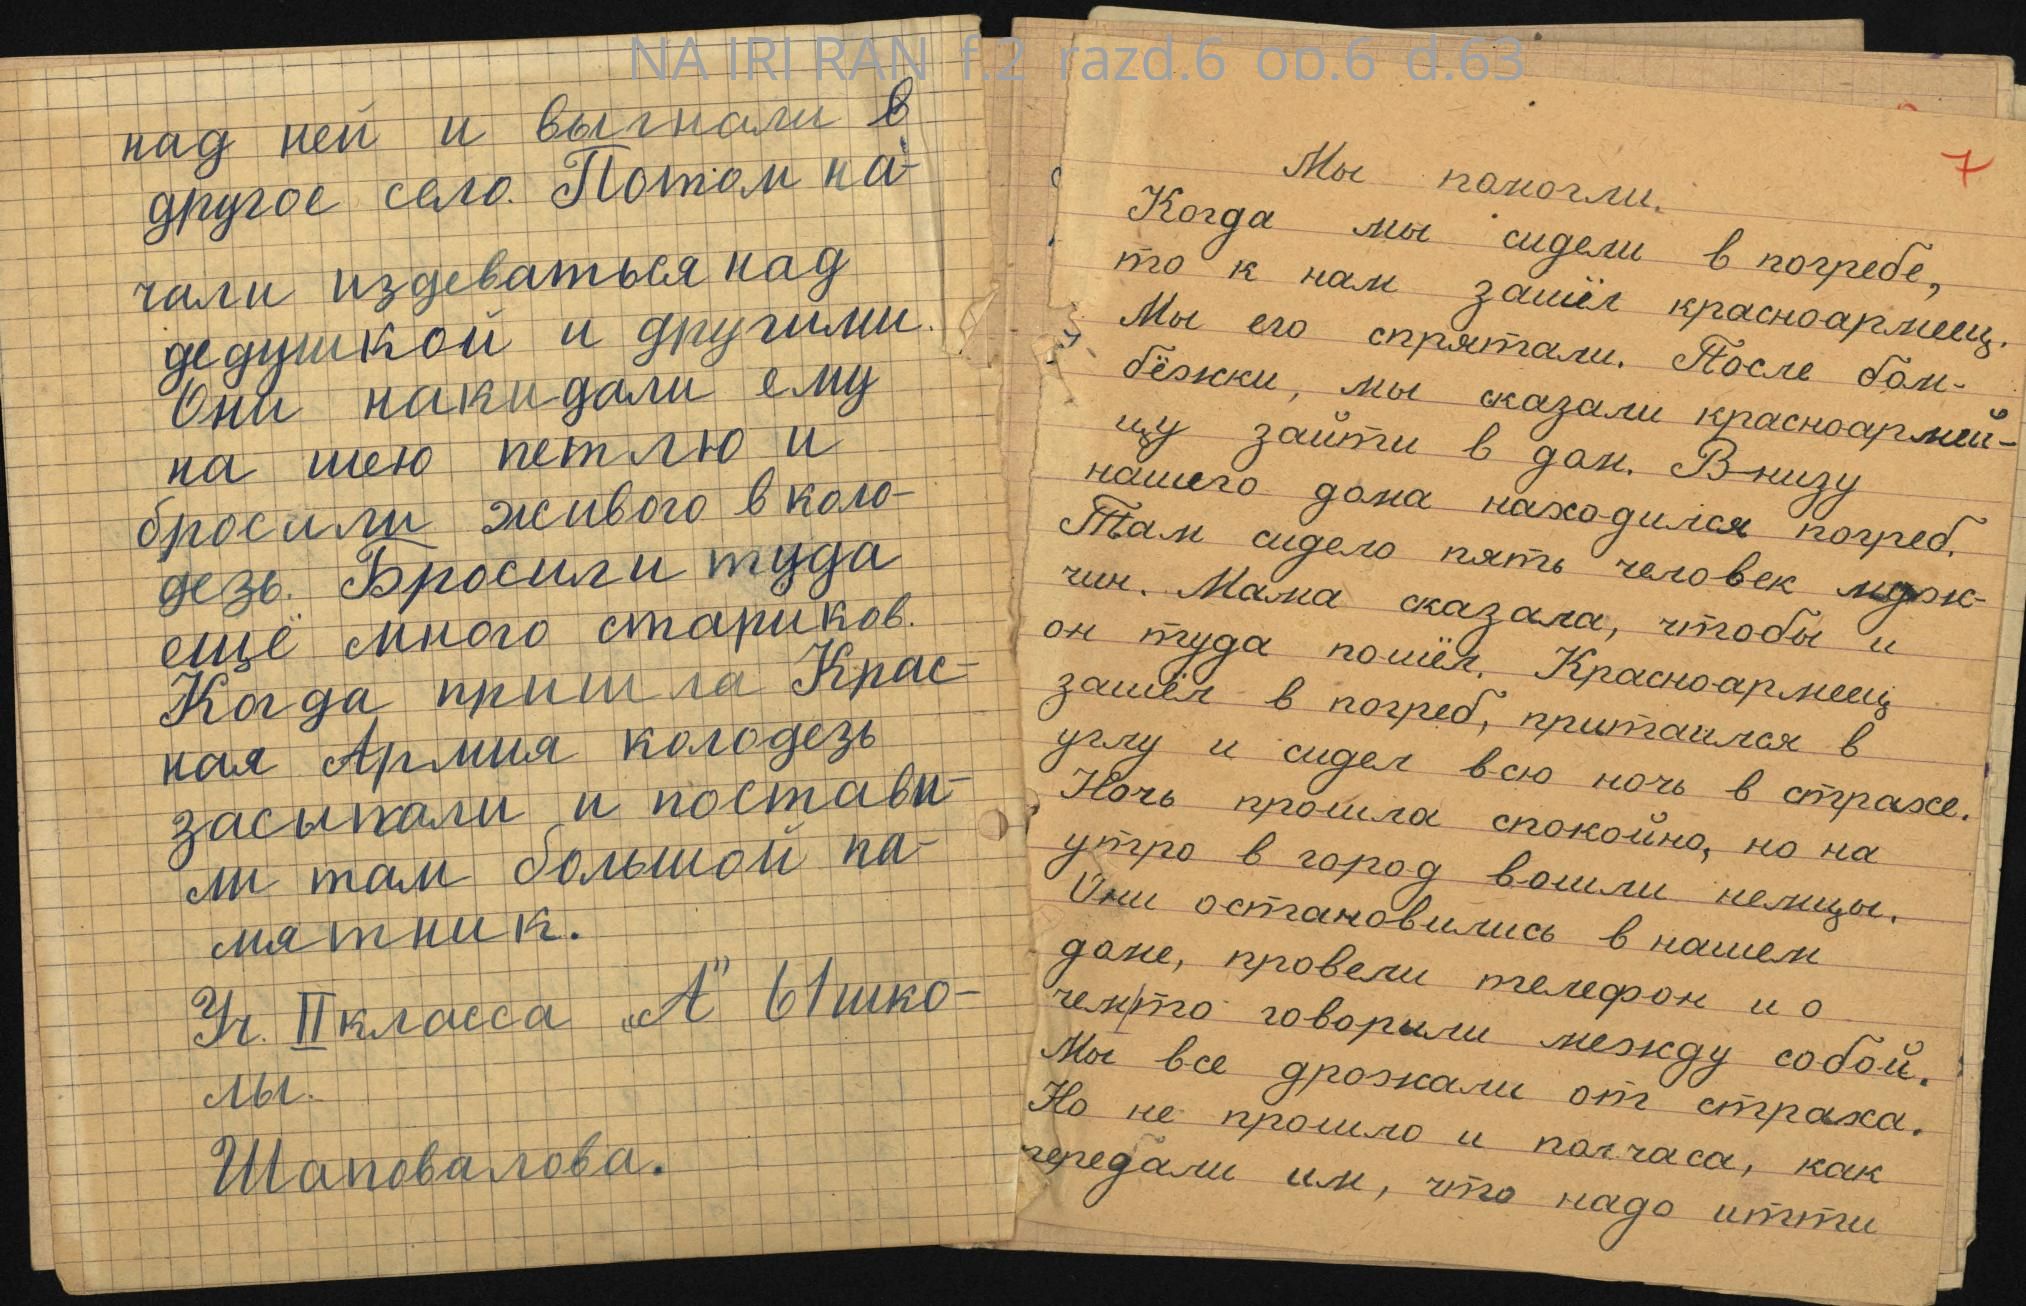 NA IRI RAN f.2 razd.6 op.6 d.63
над ней и выгнали в
другое село. Потом на-
чали издеваться над
дедушкой и другими.
Они накидали ему
на шею петлю и
бросили живого в коло-
дезь. Бросили туда
ещё много стариков.
Когда пришла Крас-
ная Армия колодезь
засыпали и постави-
ли там большой па-
мятник.
Уч. II класса „А" 61 шко-
лы.
Шаповалова.
7
Мы помогли.
Когда мы сидели в погребе,
то к нам зашёл красноармеец.
Мы его спрятали. После бом-
бёжки, мы сказали красноармей-
цу зайти в дом. В низу
нашего дома находился погреб.
Там сидело пять человек муж-
чин. Мама сказала, чтобы и
он туда пошёл. Красноармеец
зашёл в погреб, притаился в
углу и сидел всю ночь в страхе.
Ночь прошла спокойно, но на
утро в город вошли немцы.
Они остановились в нашем
доме, провели телефон и о
чем/то говорили между собой.
Мы все дрожали от страха.
Но не прошло и полчаса, как
передали им, что надо итти